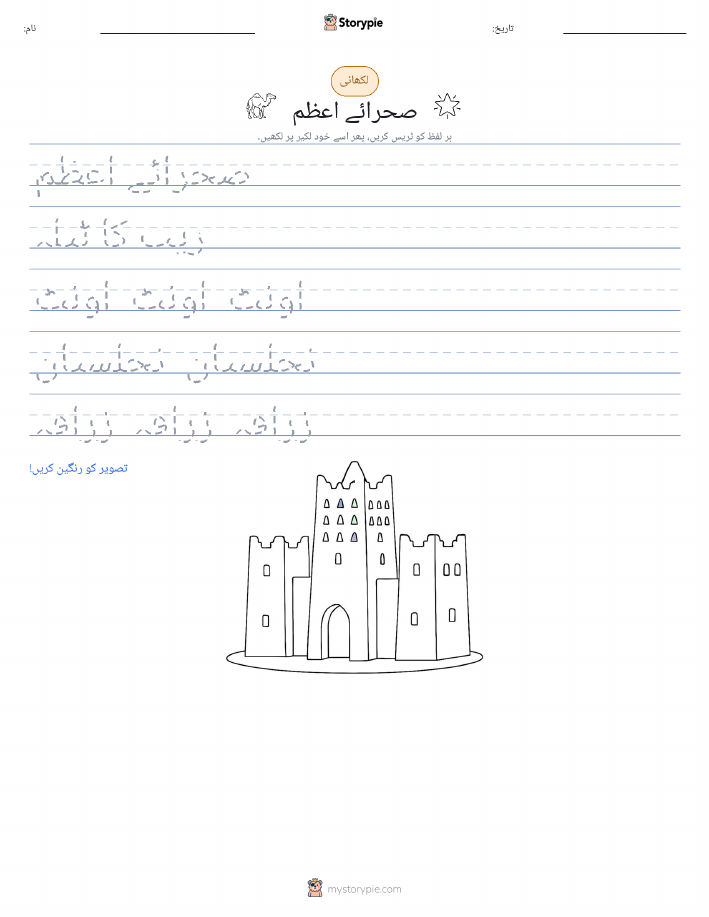 نام:
Storypie
تاریخ:
لکھائی
صحرائے اعظم
ہر لفظ کو ٹریس کریں، پھر اسے خود لکیر پر لکھیں۔
صحرائے اعظم
ریت کا ٹیلہ
اونٹ اونٹ اونٹ
نخلستان نخلستان
زرافہ زرافہ زرافہ
تصویر کو رنگین کریں!
mystorypie.com